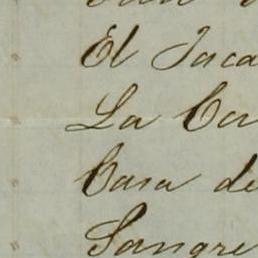 El Jaca
La Cor
Casa de
Sangre